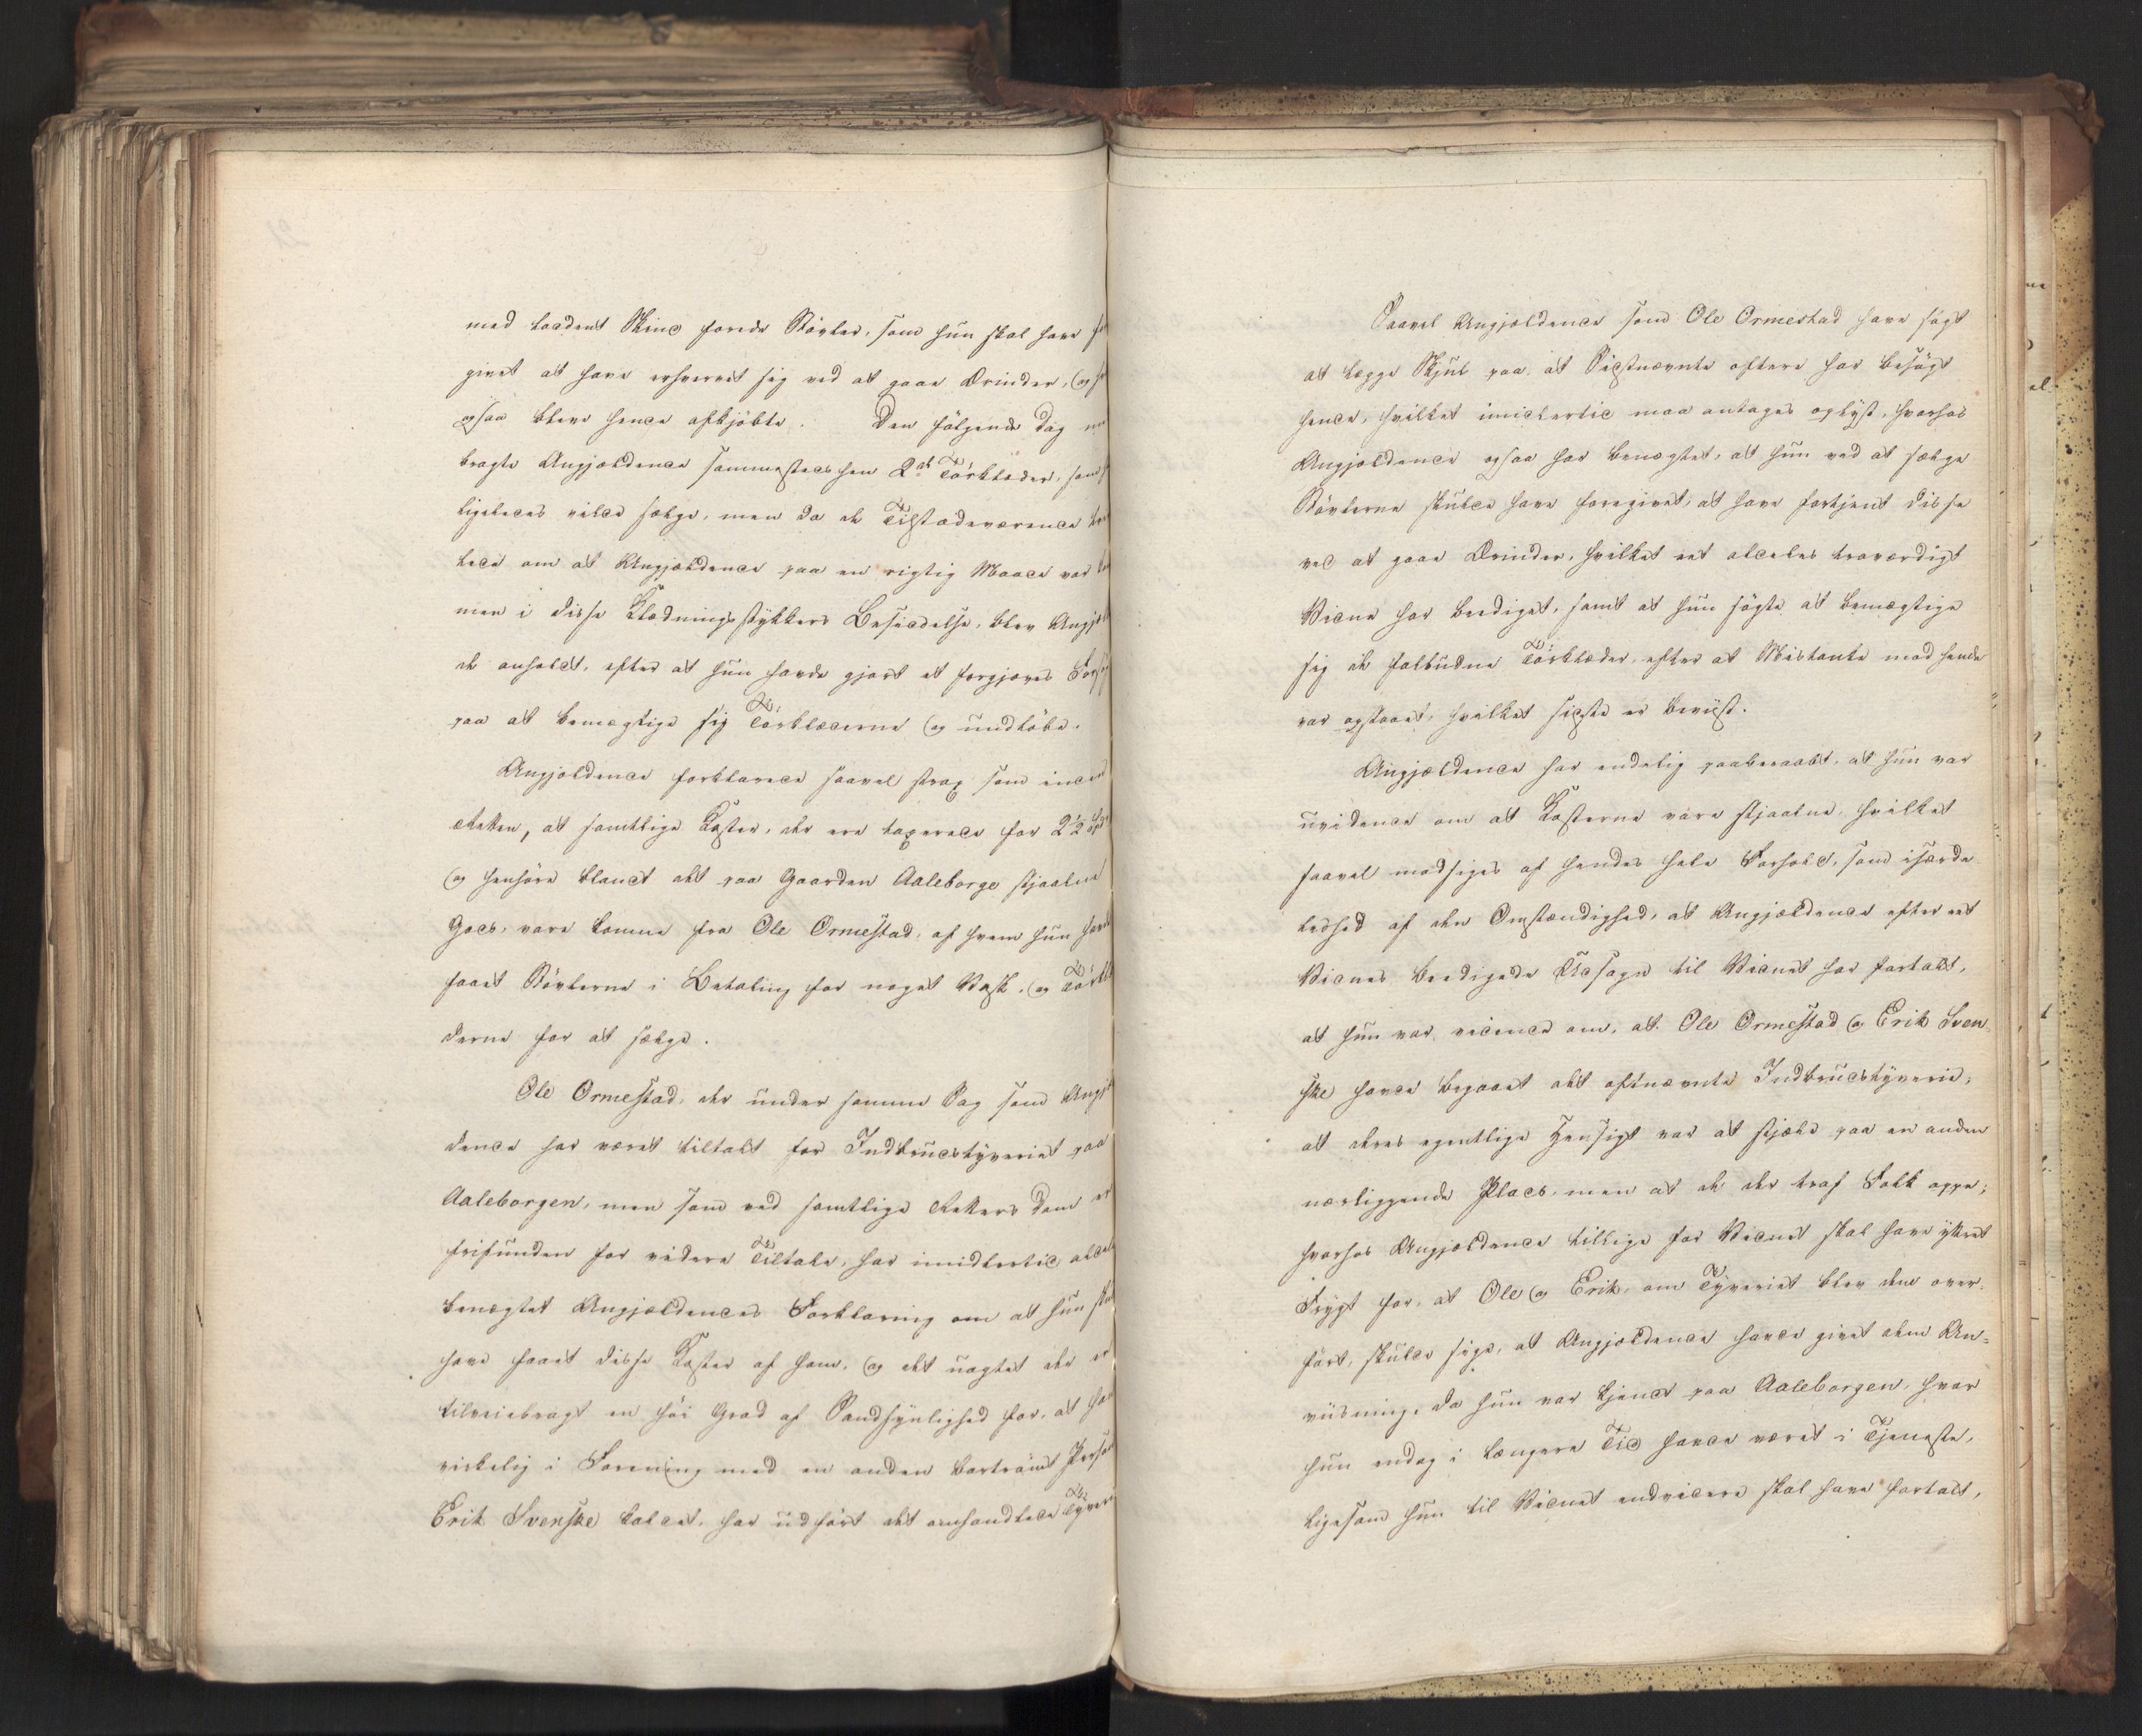 med laadent Skind forede Støvler, som hun skal have
givet at have erhvervet sig ved at gaae Ærinder, og
ogsaa bleve hende afkjøbte. Den følgende Dag
bragte Angjældende sammestedshen 2de Tørklæder, som
ligeledes vilde sælge, men da de Tilstædeværende
lede om at Angjældende paa en rigtig Maade var
men i disse Klædningsstykkers Besiddelse, blev
de anholdt, efter at hun havde gjort et forgjæves
paa at bemægtige sig Tørklæderne og undløbe.
Angjældende forklarede saavel strax som inden
Retten, at samtlige Koster, der ere taxerede for 2½
og henhøre blandt det paa Gaarden Aaleborge stjaalne
Gods, vare komne fra Ole Ormestad, af hvem hun
faaet Støvlerne i Betaling for noget Vask, og
derne for at sælge.
Ole Ormestad, der under samme Sag som
dende har været tiltalt for Indbrudstyveriet paa
Aaleborgen, men som ved samtlige Retters Dom er
frifunden for videre Tiltale, har imidlertid
benægtet Angjældendes Forklaring om at hun
have faaet disse Koster af ham, og det uagtet der er
tilveiebragt en høi Grad af Sandsynlighed for, at
virkelig i Forening med en anden bortrømt
Erik Svenske kaldet, har udført det omhandlede
Saavel Angjældende som Ole Ormestad have søgt
at lægge Skjul paa, at Sidstnævnte oftere har besøgt
hende, hvilket imidlertid maa antages oplyst, hvorhos
Angjældende ogsaa har benægtet, at hun ved at sælge
Støvlerne skulde have foregivet, at have fortjent disse
ved at gaae Ærinder, hvilket eet aldeles troværdigt
Vidne har beediget, samt at hun søgte at bemægtige
sig de falbudne Tørklæder, efter at Mistanke mod hende
var opstaaet, hvilket sidste er beviist.
Angjældende har endelig paaberaabt, at hun var
uvidende om at Kosterne vare stjaalne, hvilket
saavel modsiges af hendes hele Forhold, som isærde
leshed af den Omstændighed, at Angjældende efter eet
Vidnes beedigede Udsagn til Vidnet har fortalt,
at hun var vidende om, at Ole Ormestad og Erik Sven
ske havde begaaet det oftnævnte Indbrudstyverie;
at deres egentlige Hensigt var at stjæle paa en anden
nærliggende Plads, men at de der traf Folk oppe;
hvorhos Angjældende tillige for Vidnet skal have yttret
Frygt for, at Ole og Erik, om Tyveriet blev dem over-
ført, skulde sige, at Angjældende havde givet dem An-
viisning, da hun var kjendt paa Aaleborgen, hvor
hun endog i længere Tid havde været i Tjeneste,
ligesom hun til Vidnet endvidere skal have fortalt,